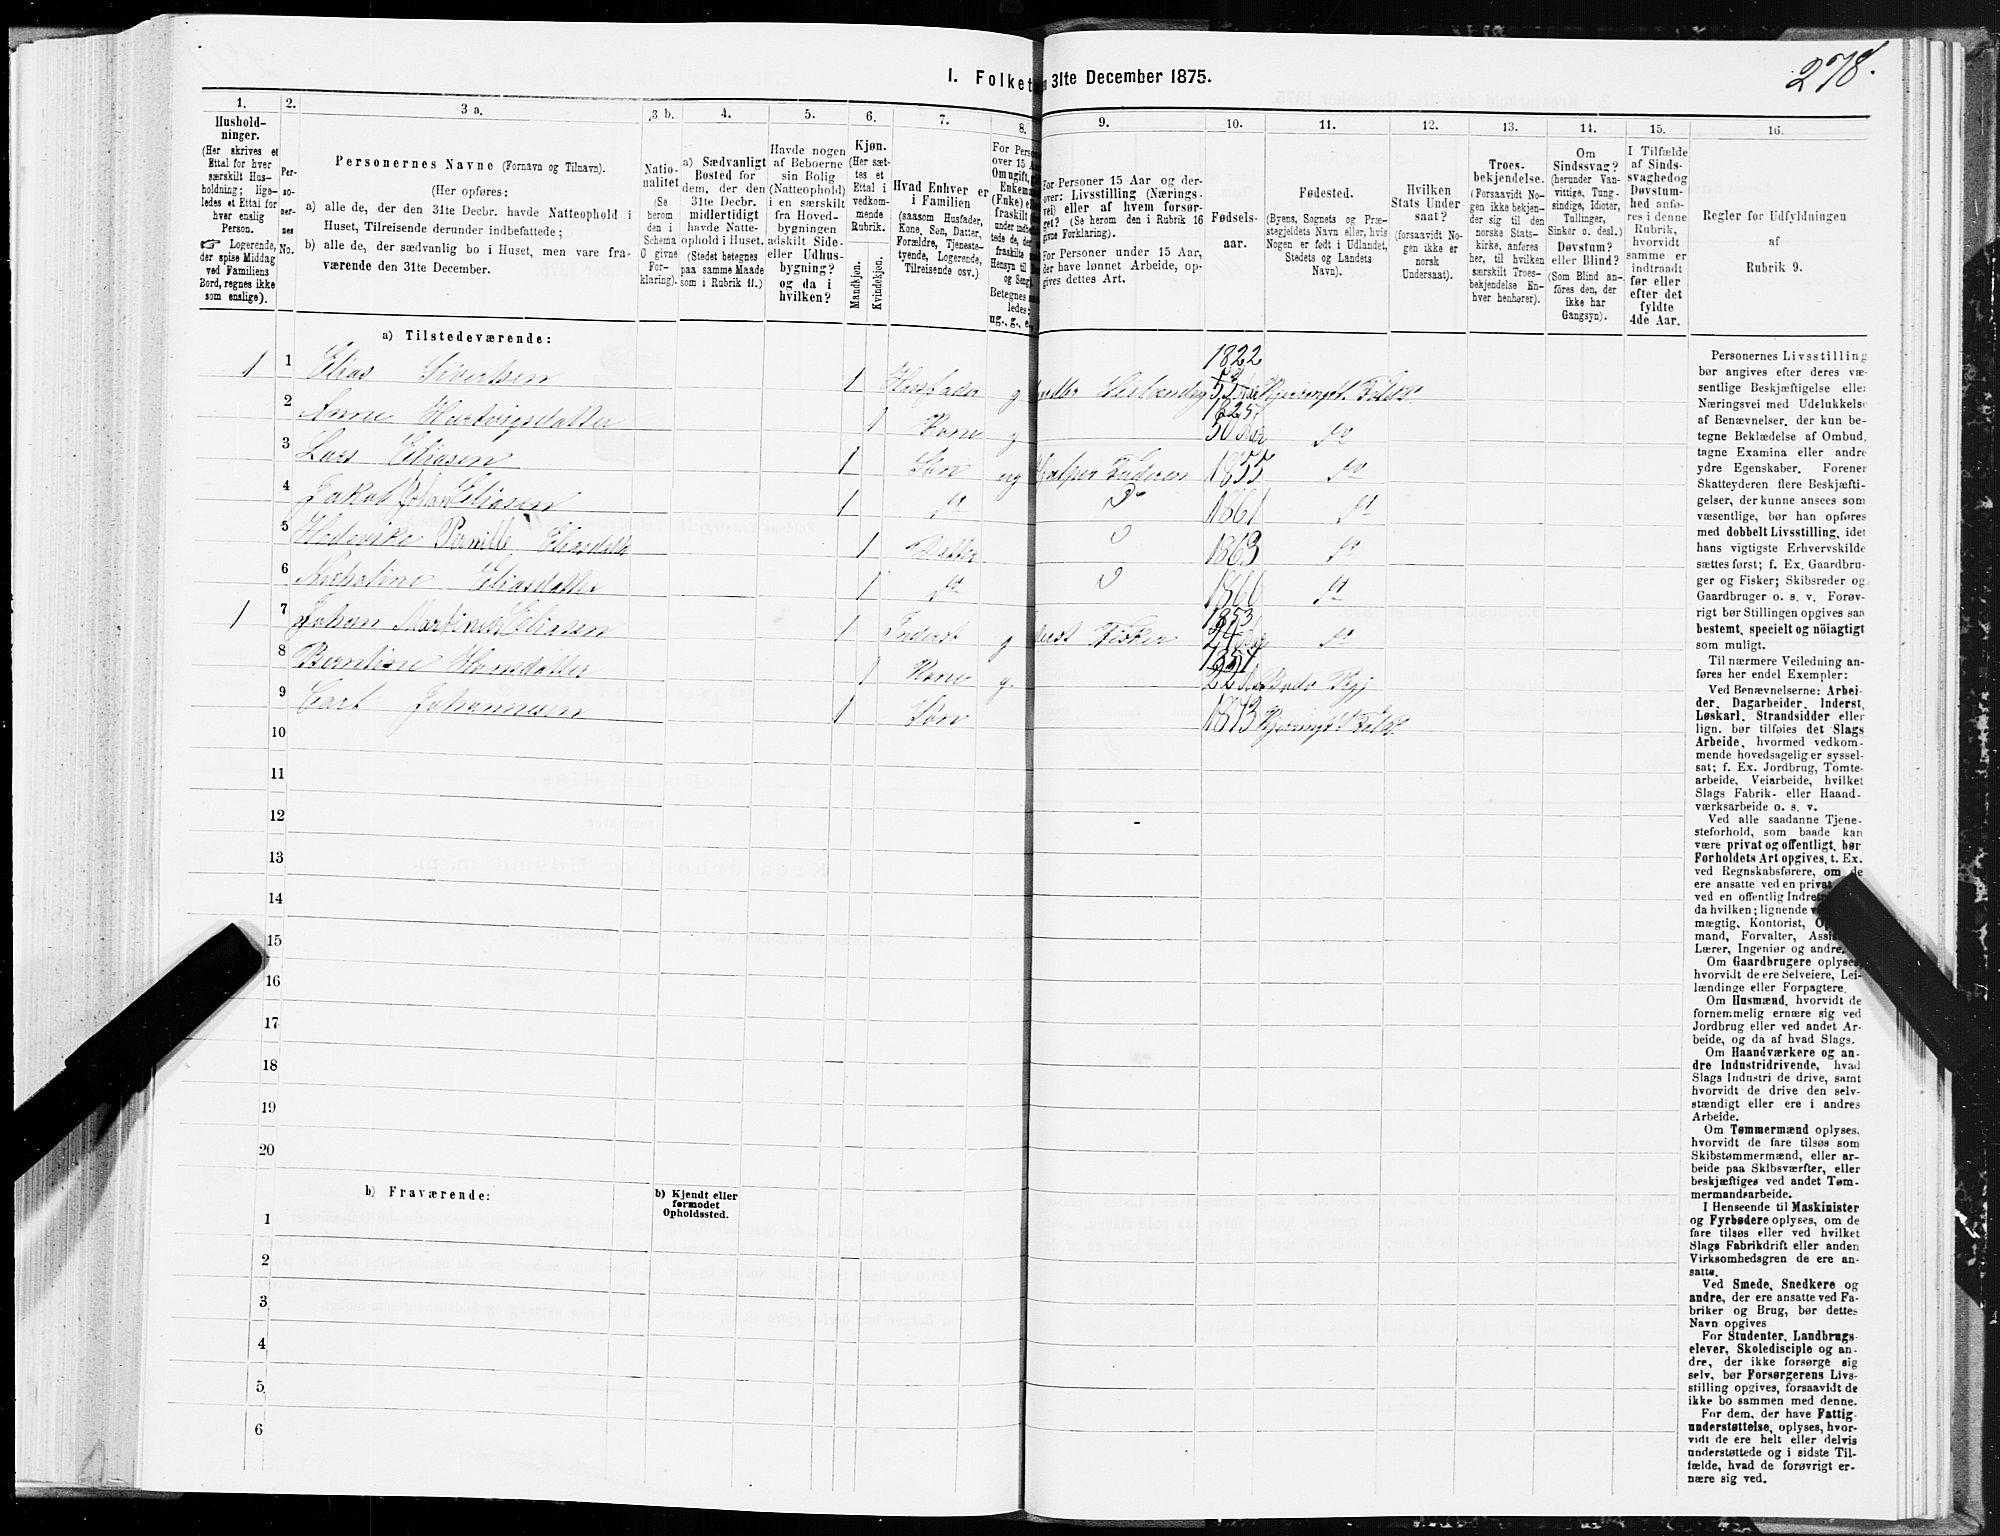 278.
I. Folket
31te December 1875.
1.
2.
3 a.
3 b.
4.
5.
6.
7.
8.
9.
10.
11.
12.
13.
14.
15.
16.
Hushold-
ninger.
(Her skrives et
Ettal for hver
særskilt Hus-
holdning; lige-
ledes et Ettal for
hver enslig
Person.
☞ Logerende,
der spise Middag
ved Familiens
Bord, regnes ikke
som enslige).
Per-
so-
ner-
nes
No.
Personernes Navne (Fornavn og Tilnavn).
(Her opføres:
a) alle de, der den 31te Decbr. havde Natteophold i
Huset, Tilreisende derunder indbefattede;
b) alle de, der sædvanlig bo i Huset, men vare fra-
værende den 31te December.
Natio-
nalitet
(Se
herom
den i
Schema
O givne
For-
klaring).
a) Sædvanligt
Bosted for
dem, der den
31te Decbr.
midlertidigt
havde Natte-
ophold i Huset.
(Stedet betegnes
paa samme Maade
som i Rubrik 11.)
Havde nogen
af Beboerne
sin Bolig
(Natteophold)
i en særskilt
fra Hoved-
bygningen
adskilt Side-
eller Udhus-
bygning?
og da i
hvilken?
Kjøn.
(Her sæt-
tes et
Ettal i
vedkom-
mende
Rubrik.
Mandkjøn.
Kvindekjøn.
Hvad Enhver er
i Familien
(saasom Husfader,
Kone, Søn, Datter,
Forældre, Tjeneste-
tyende, Logerende,
Tilreisende osv.)
For Perso
over 15 Aa
Om ugift, g
Enkema
(Enke) e
fraskilt
Hensyn til
og Seng
Betegnes
ledes:
ug., g., e.
For Personer 15 Aar og der-
over: Livsstilling (Nærings-
vei) eller af hvem forsør-
get? (Se herom den i Rubrik 16
givne Forklaring).
For Personer under 15 Aar,
der have lønnet Arbeide, op-
gives dettes Art.
Fødsels-
aar.
Fødested.
(Byens, Sognets og Præ-
stegjeldets Navn eller, hvis
Nogen er født i Udlandet,
Stedets og Landets
Navn).
Hvilken
Stats Under
saat?
(forsaavidt No-
gen ikke er
norsk
Undersaat).
Troes-
bekjendelse.
(Forsaavidt No-
gen ikke bekjen-
der sig til den
norske Stats-
kirke, anføres
her, til hvilken
særskilt Troes-
bekjendelse En-
hver henhører).
Om
Sindssvag?
(herunder Van-
vittige, Tung-
sindige, Idioter,
Tullinger,
Sinker o. desl.)
Døvstum?
eller Blind?
(Som Blind an-
føres den, der
ikke har
Gangsyn).
I Tilfælde
af Sinds-
svaghed og
Døvstum-
hed anfø-
res i denne
Rubrik,
hvorvidt
samme er
indtraadt
før eller
efter det
fyldte
4de Aar.
Regler for Udfyldningen
af
Rubrik 9.
a) Tilstedeværende:
1 1 Elias Sivertsen 1 Husfader g 1822 Kjeringø
2 Anne Hartvigsdatter 1 Kone g 1825 50 Aar do
3 Lars Eliasen 1 Søn ug Hjælper Faderen 1855 do
4 Jakob Johan Eliasen 1 do Do 1861 do
5 Pernille Eliasdatter 1 Datter 1863 do
6 Eliasdatter 1 do 1866 do
1 7 Johan Martinus Eliasen 1 Inderst g Fisker 1853 do
8 Berntine Hansdatter 1 Kone g. Bodø
9 Carl Johannesen 1 Søn 1873 Kjeringø
10
11
12
13
14
15
16
17
18
19
20
b) Fraværende:
b) Kjendt eller
formodet
Opholdssted.
1
2
3
4
5
6
Personernes Livsstilling
bør angives efter deres væ-
sentlige Beskjæftigelse eller
Næringsvei med Udelukkelse
af Benævnelser, der kun be-
tegne Beklædelse af Ombud,
tagne Examina eller andre
ydre Egenskaber. Forener
Skatteyderen flere Beskjæfti-
gelser, der kunne ansees som
væsentlige, bør han opføres
med dobbelt Livsstilling, idet
hans vigtigste Erhvervskilde
sættes først; f. Ex. Gaardbru-
ger og Fisker; Skibsreder og
Gaardbruger o. s. v. Forøv-
rigt bør Stillingen opgives saa
bestemt, specielt og nöiagtigt
som muligt.
Til nærmere Veiledning an-
føres her endel Exempler:
Ved Benævnelserne: Arbei-
der, Dagarbeider, Inderst,
Løskarl, Strandsidder eller
lign. bør tilføies det Slags
Arbeide, hvormed vedkom-
mende hovedsagelig er syssel-
sat; f. Ex. Jordbrug, Tomte-
arbeide, Veiarbeide, hvilket
Slags Fabrik- eller Haand-
værksarbeide o. s. v.
Ved alle saadanne Tjene-
steforhold, som baade kan
være privat og offentligt, bør
Forholdets Art opgives, t. Ex.
ved Regnskabsførere, om de
ere ansatte ved en privat
ved en offentlig Indretn
da hvilken; lignende v
mægtig, Kontorist, O
mand, Forvalter, Assi
Lærer, Ingeniør og andre.
Om Gaardbrugere oplyses,
hvorvidt de ere Selveiere, Lei-
lændinge eller Forpagtere.
Om Husmænd, hvorvidt de
fornemmelig ernære sig ved
Jordbrug eller ved andet Ar-
beide, og da af hvad Slags.
Om Haandværkere og an-
dre Industridrivende, hvad
Slags Industri de drive, samt
hvorvidt de drive den selv-
stændigt eller ere i andres
Arbeide.
Om Tømmermænd oplyses,
hvorvidt de fare tilsøs som
Skibstømmermænd, eller ar-
beide paa Skibsværfter, eller
beskjæftiges ved andet Tøm-
mermandsarbeide.
I Henseende til Maskinister
og Fyrbødere oplyses, om de
fare tilsøs eller ved hvilket
Slags Fabrikdrift eller anden
Virksomhedsgren de ere an-
satte.
Ved Smede, Snedkere og
andre, der ere ansatte ved Fa-
briker og Brug, bør dettes
Navn opgives
For Studenter, Landbrugs-
elever, Skoledisciple og an-
dre, der ikke forsørge sig
selv, bør Forsørgerens Livs-
stilling opgives, forsaavidt de
ikke bo sammen med denne.
For dem, der have Fattig-
understøttelse, oplyses, hvor-
vidt de ere helt eller delvis
understøttede og i sidste Til-
fælde, hvad de forøvrigt er-
nære sig ved.